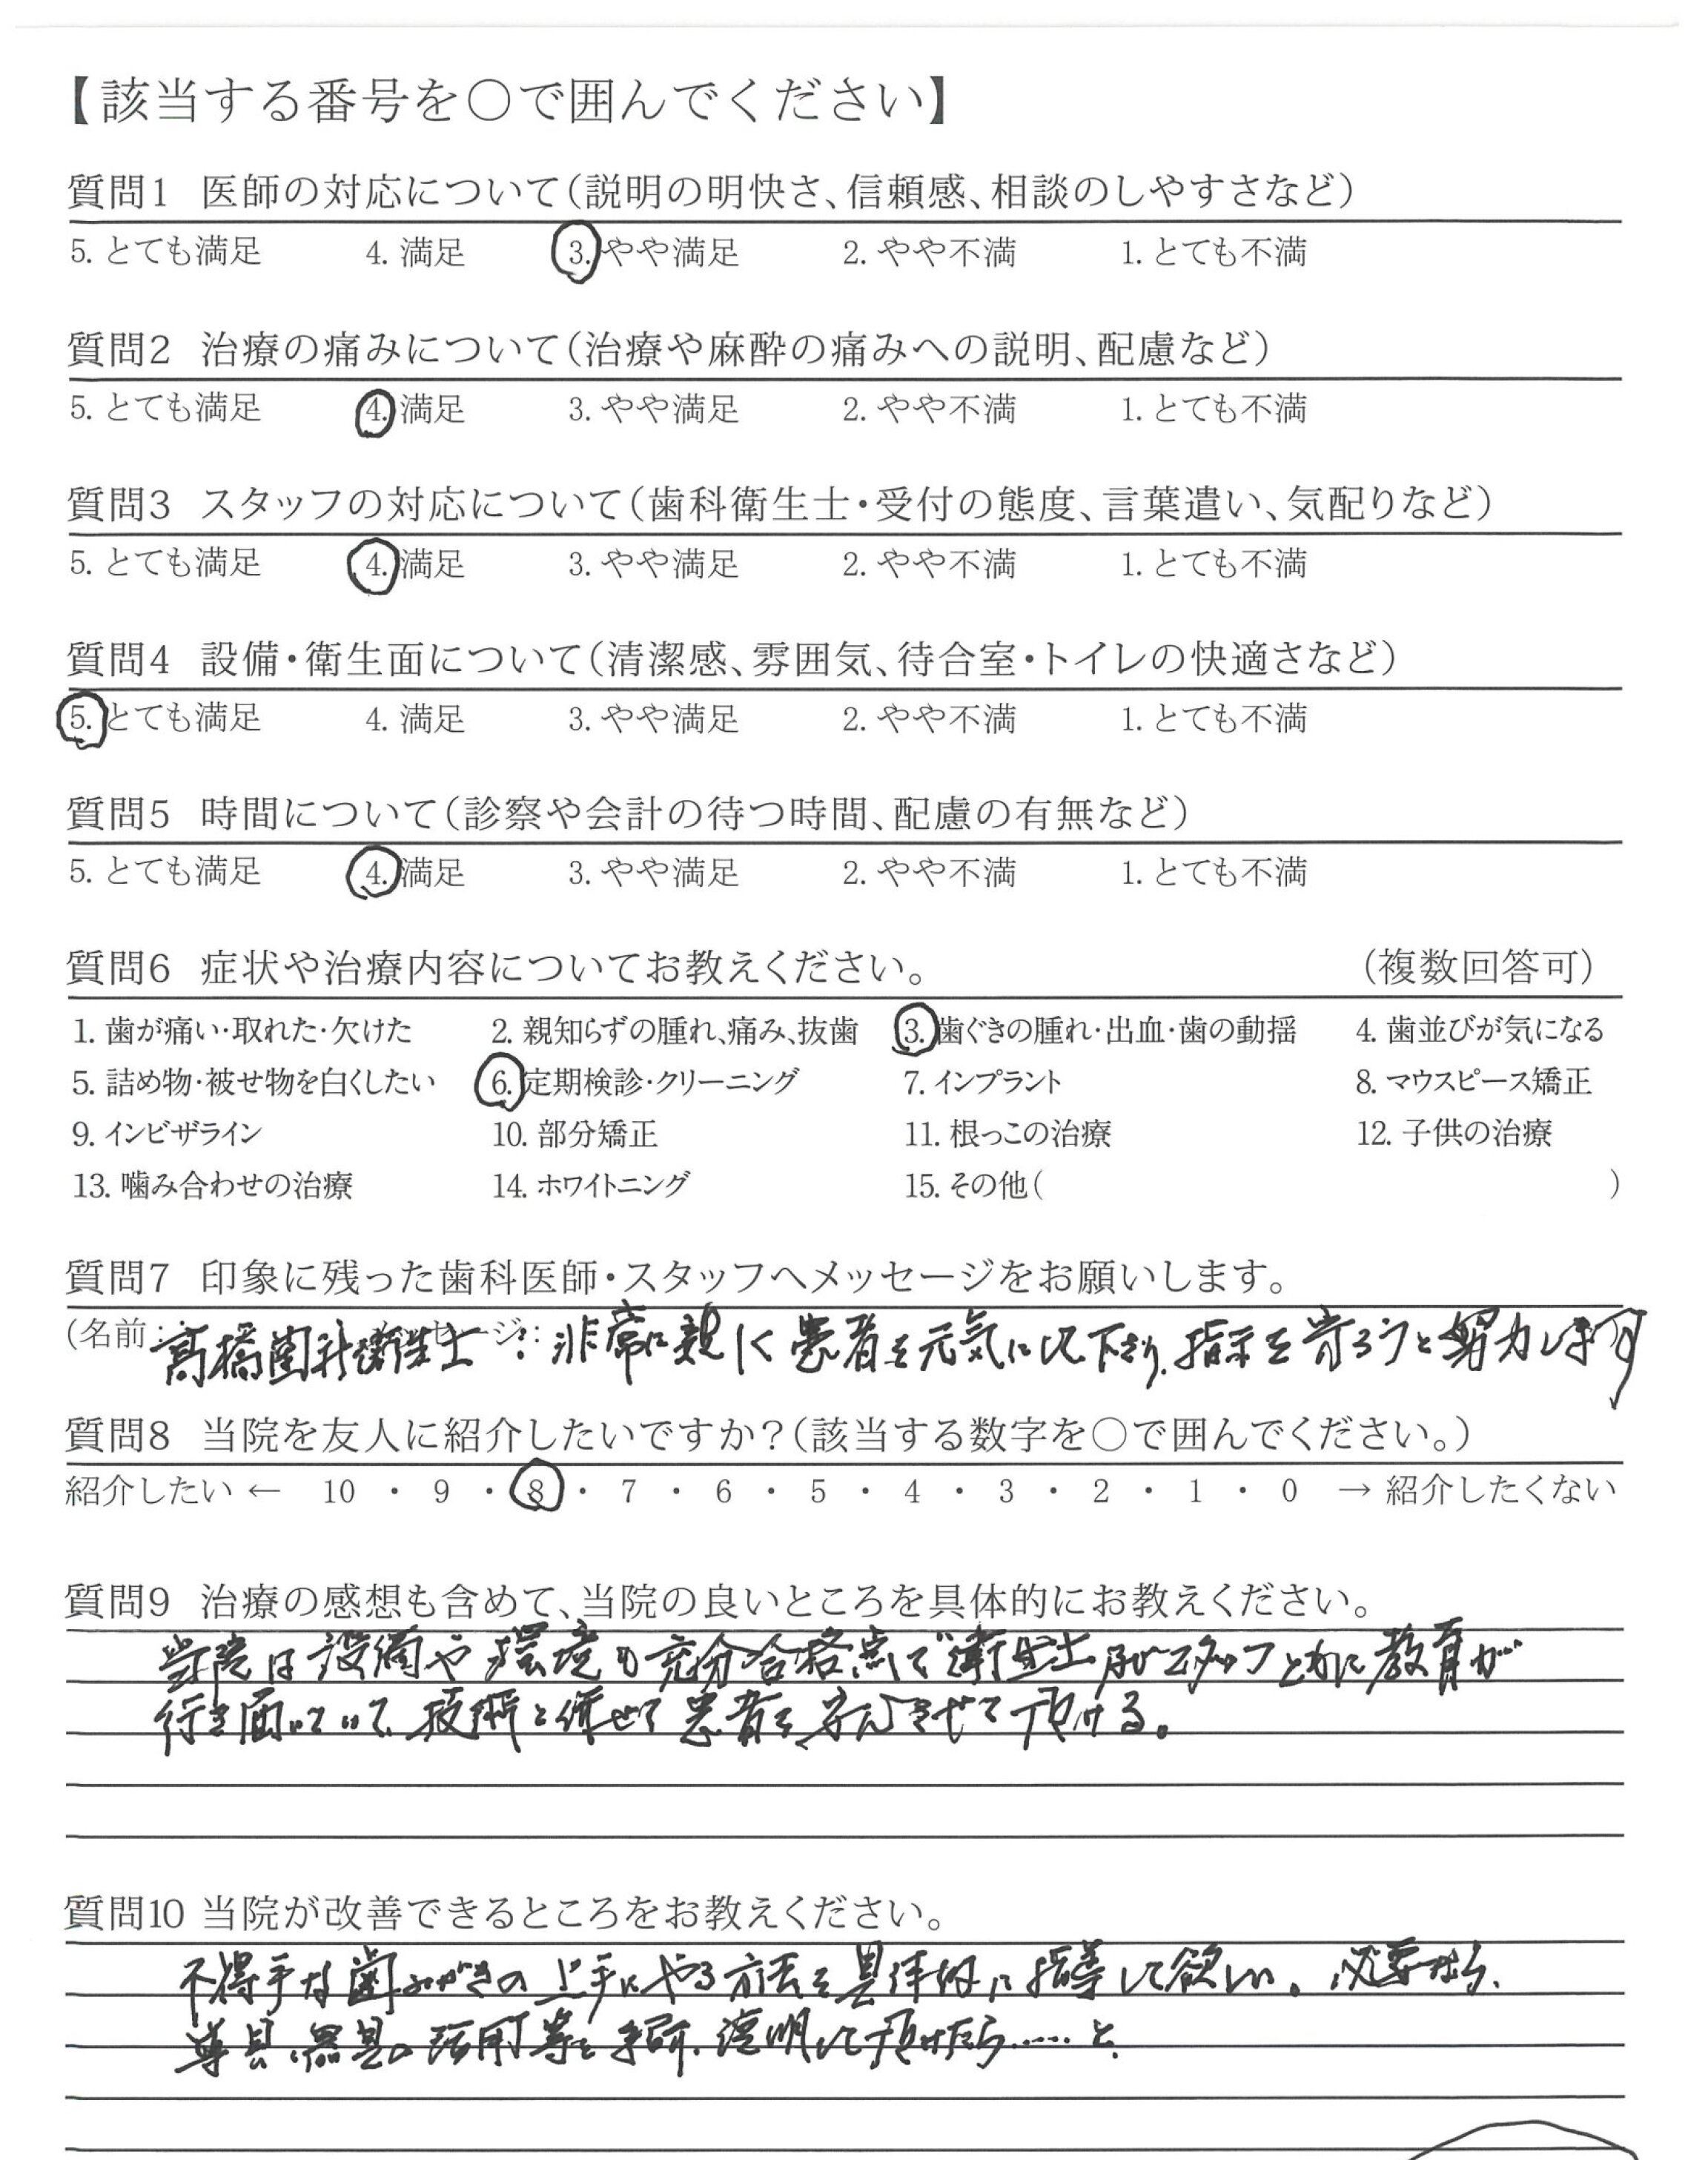 【該当する番号を○で囲んでください】
質問1 医師の対応について(説明の明快さ、信頼感、相談のしやすさなど)
5. とても満足 4. 満足 3. やや満足 2. やや不満 1. とても不満
質問2 治療の痛みについて(治療や麻酔の痛みへの説明、配慮など)
5. とても満足 4. 満足 3. やや満足 2. やや不満 1. とても不満
質問3 スタッフの対応について(歯科衛生士・受付の態度、言葉遣い、気配りなど)
5. とても満足 4. 満足 3. やや満足 2. やや不満 1. とても不満
質問4 設備・衛生面について(清潔感、雰囲気、待合室・トイレの快適さなど)
5. とても満足 4. 満足 3. やや満足 2. やや不満 1. とても不満
質問5 時間について(診察や会計の待つ時間、配慮の有無など)
5. とても満足 4. 満足 3. やや満足 2. やや不満 1. とても不満
質問6 症状や治療内容についてお教えください。 (複数回答可)
1. 歯が痛い・取れた・欠けた 2. 親知らずの腫れ、痛み、抜歯 3. 歯ぐきの腫れ・出血・歯の動揺 4. 歯並びが気になる
5. 詰め物・被せ物を白くしたい 6. 定期検診・クリーニング 7. インプラント 8. マウスピース矯正
9. インビザライン 10. 部分矯正 11. 根っこの治療 12. 子供の治療
13. 噛み合わせの治療 14. ホワイトニング 15. その他( )
質問7 印象に残った歯科医師・スタッフへメッセージをお願いします。
(名前: 高橋歯科衛生士 メッセージ: 非常に親しく患者を元気に 下さり、指示を守ろうと努力します
質問8 当院を友人に紹介したいですか?(該当する数字を○で囲んでください。)
紹介したい ← 10 ・ 9 ・ 8 ・ 7 ・ 6 ・ 5 ・ 4 ・ 3 ・ 2 ・ 1 ・ 0 → 紹介したくない
質問9 治療の感想も含めて、当院の良いところを具体的にお教えください。
当院は設備や環境も充分合格点で衛生士及びスタッフともに教育が
行き届いていて、技術と併せて患者を安心させて頂ける。
質問10 当院が改善できるところをお教えください。
不得手な歯みがきの上手にやる方法を具体的に指導して欲しい。必要なら、
導具、器具の活用等を 説明して頂けたら……と、